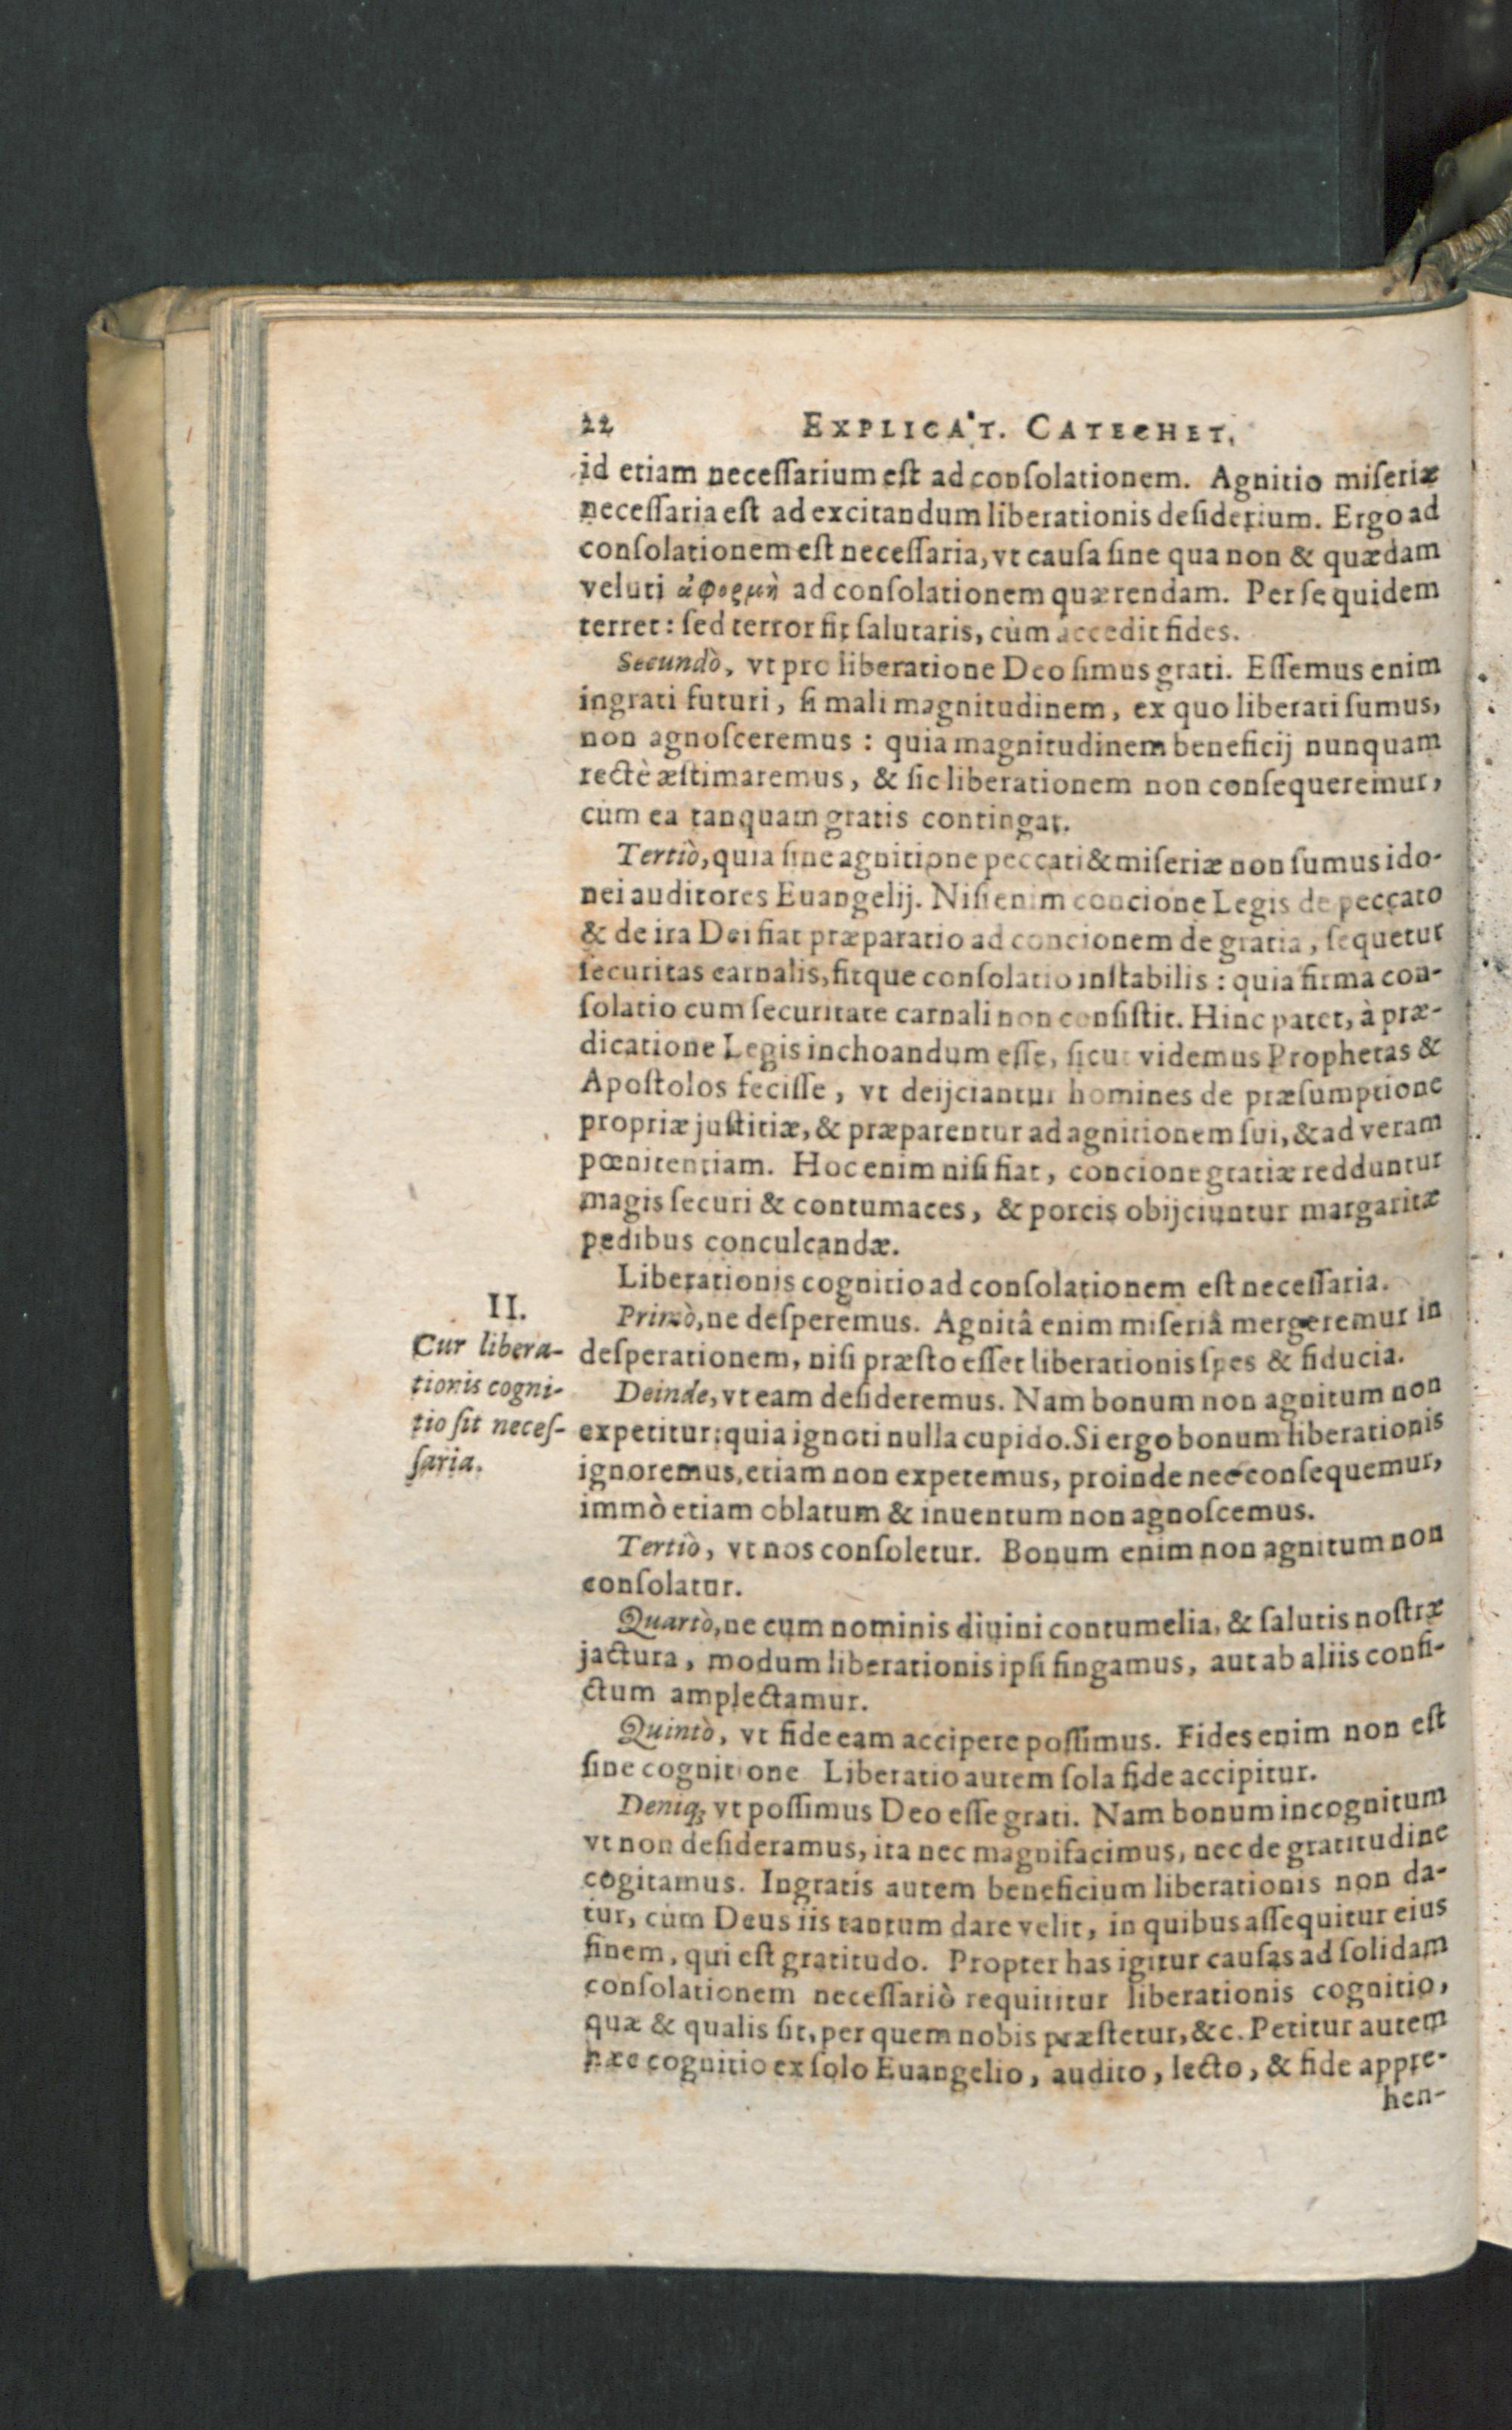 22 EXPLICAT. CATECHET.
id etiam neceſſarium eſt ad conſolationem. Agnitio miſeriæ
neceſſaria eſt ad excitandum liberationis deſiderium. Ergo ad
conſolationem eſt neceſſaria, vt cauſa ſine qua non & quædam
veluti ἀφορμὴ ad conſolationem quærendam. Per ſe quidem
terret: ſed terror fit ſalutaris, cùm accedit fides.
Secundò, vt pro liberatione Deo ſimus grati. Eſſemus enim
ingrati futuri, ſi mali magnitudinem, ex quo liberati ſumus,
non agnoſceremus: quia magnitudinem beneficij nunquam
rectè æſtimaremus, & ſic liberationem non conſequeremur,
cùm ea tanquam gratis contingat.
Tertiò, quia ſine agnitione peccati & miſeriæ non ſumus ido-
nei auditores Euangelij. Niſi enim concione Legis de peccato
& de ira Dei fiat præparatio ad concionem de gratia, ſequetur
ſecuritas carnalis, fitque conſolatio inſtabilis: quia firma con-
ſolatio cum ſecuritate carnali non conſiſtit. Hinc patet, à præ-
dicatione Legis inchoandum eſſe, ſicut videmus Prophetas &
Apoſtolos feciſſe, vt deijciantur homines de præſumptione
propriæ juſtitiæ, & præparentur ad agnitionem ſui, & ad veram
pœnitentiam. Hoc enim niſi fiat, concione gratiæ redduntur
magis ſecuri & contumaces, & porcis obijciuntur margaritæ
pedibus conculcandæ.
Liberationis cognitio ad conſolationem eſt neceſſaria.
II.
Cur libera-
tionis cogni-
tio ſit neceſ-
ſaria.
Primò, ne deſperemus. Agnitâ enim miſeriâ mergeremur in
deſperationem, niſi præſto eſſet liberationis ſpes & fiducia.
Deinde, vt eam deſideremus. Nam bonum non agnitum non
expetitur; quia ignoti nulla cupido. Si ergo bonum liberationis
ignoremus, etiam non expetemus, proinde nec conſequemur,
immò etiam oblatum & inuentum non agnoſcemus.
Tertiò, vt nos conſoletur. Bonum enim non agnitum non
conſolatur.
Quartò, ne cum nominis diuini contumelia, & ſalutis noſtræ
jactura, modum liberationis ipſi fingamus, aut ab aliis confi-
ctum amplectamur.
Quintò, vt fide eam accipere poſſimus. Fides enim non eſt
ſine cognitione Liberatio autem ſola fide accipitur.
Deniq; vt poſſimus Deo eſſe grati. Nam bonum incognitum
vt non deſideramus, ita nec magnifacimus, nec de gratitudine
cogitamus. Ingratis autem beneficium liberationis non da-
tur, cùm Deus iis tantum dare velit, in quibus aſſequitur eius
finem, qui eſt gratitudo. Propter has igitur cauſas ad ſolidam
conſolationem neceſſariò requiritur liberationis cognitio,
quæ & qualis ſit, per quem nobis præſtetur, &c. Petitur autem
hæc cognitio ex ſolo Euangelio, audito, lecto, & fide appre-
hen-